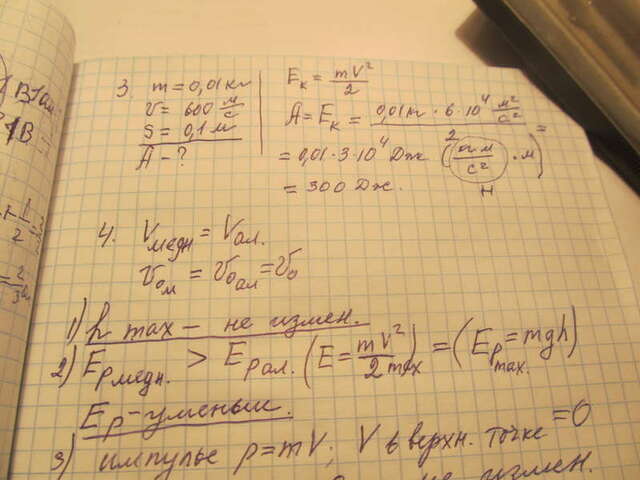 3. m = 0,01 кг
v = 600 м/с
S = 0,1 м
A - ?
Eк = mV²/2
A = Eк = 0,01 кг · 6 · 10⁴ м²/с² / 2 =
= 0,01 · 3 · 10⁴ Дж (кг·м/с² · м)
Н
= 300 Дж.
4. Vмедн = Vал.
v₀м = v₀ал = v₀
1) h max - не измен.
2) Eр медн. > Eр ал. (E = mV²/2 max) = (Eр max. = mgh)
Eр - уменьш.
3) импульс p = mV; V в верхн. точке = 0
не измен.
B
1B
1/2
2/3